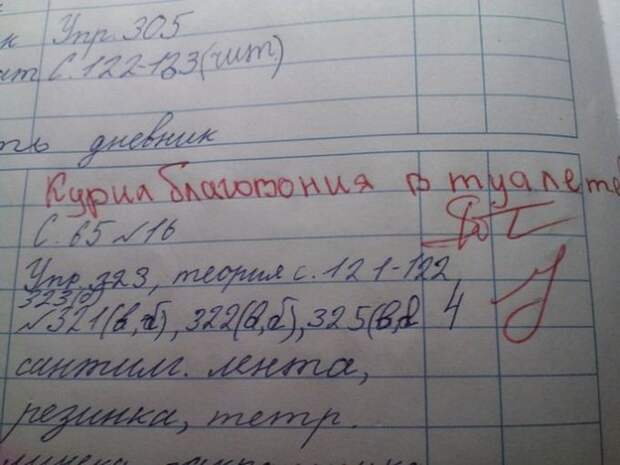 к Упр. 305
ат С. 122-123 (чит.)
ть дневник
Курил благовония в туалете
С. 65 №16
Упр. 323, теория с. 121-122
323(б)
№321(в,б), 322(а,б), 325(в, 4
сантим. лента,
резинка, тетр.